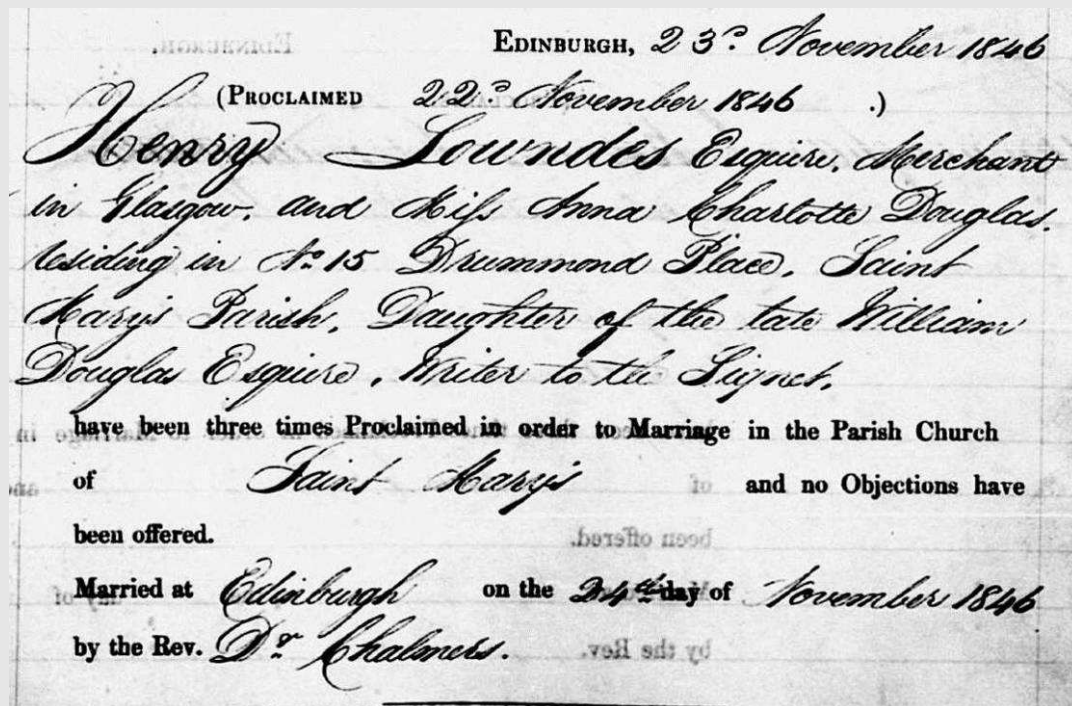 EDINBURGH, 23d. November 1846
(PROCLAIMED 22d. November 1846 .)
Henry Lowndes Esquire, Merchant
in Glasgow, and Miss Anna Charlotte Douglas,
residing in No. 15 Drummond Place, Saint
Marys Parish, Daughter of the late William
Douglas Esquire, Writer to the Signet,
have been three times Proclaimed in order to Marriage in the Parish Church
of Saint Mary's and no Objections have
been offered.
Married at Edinburgh on the 24th day of November 1846
by the Rev. Dr Chalmers.